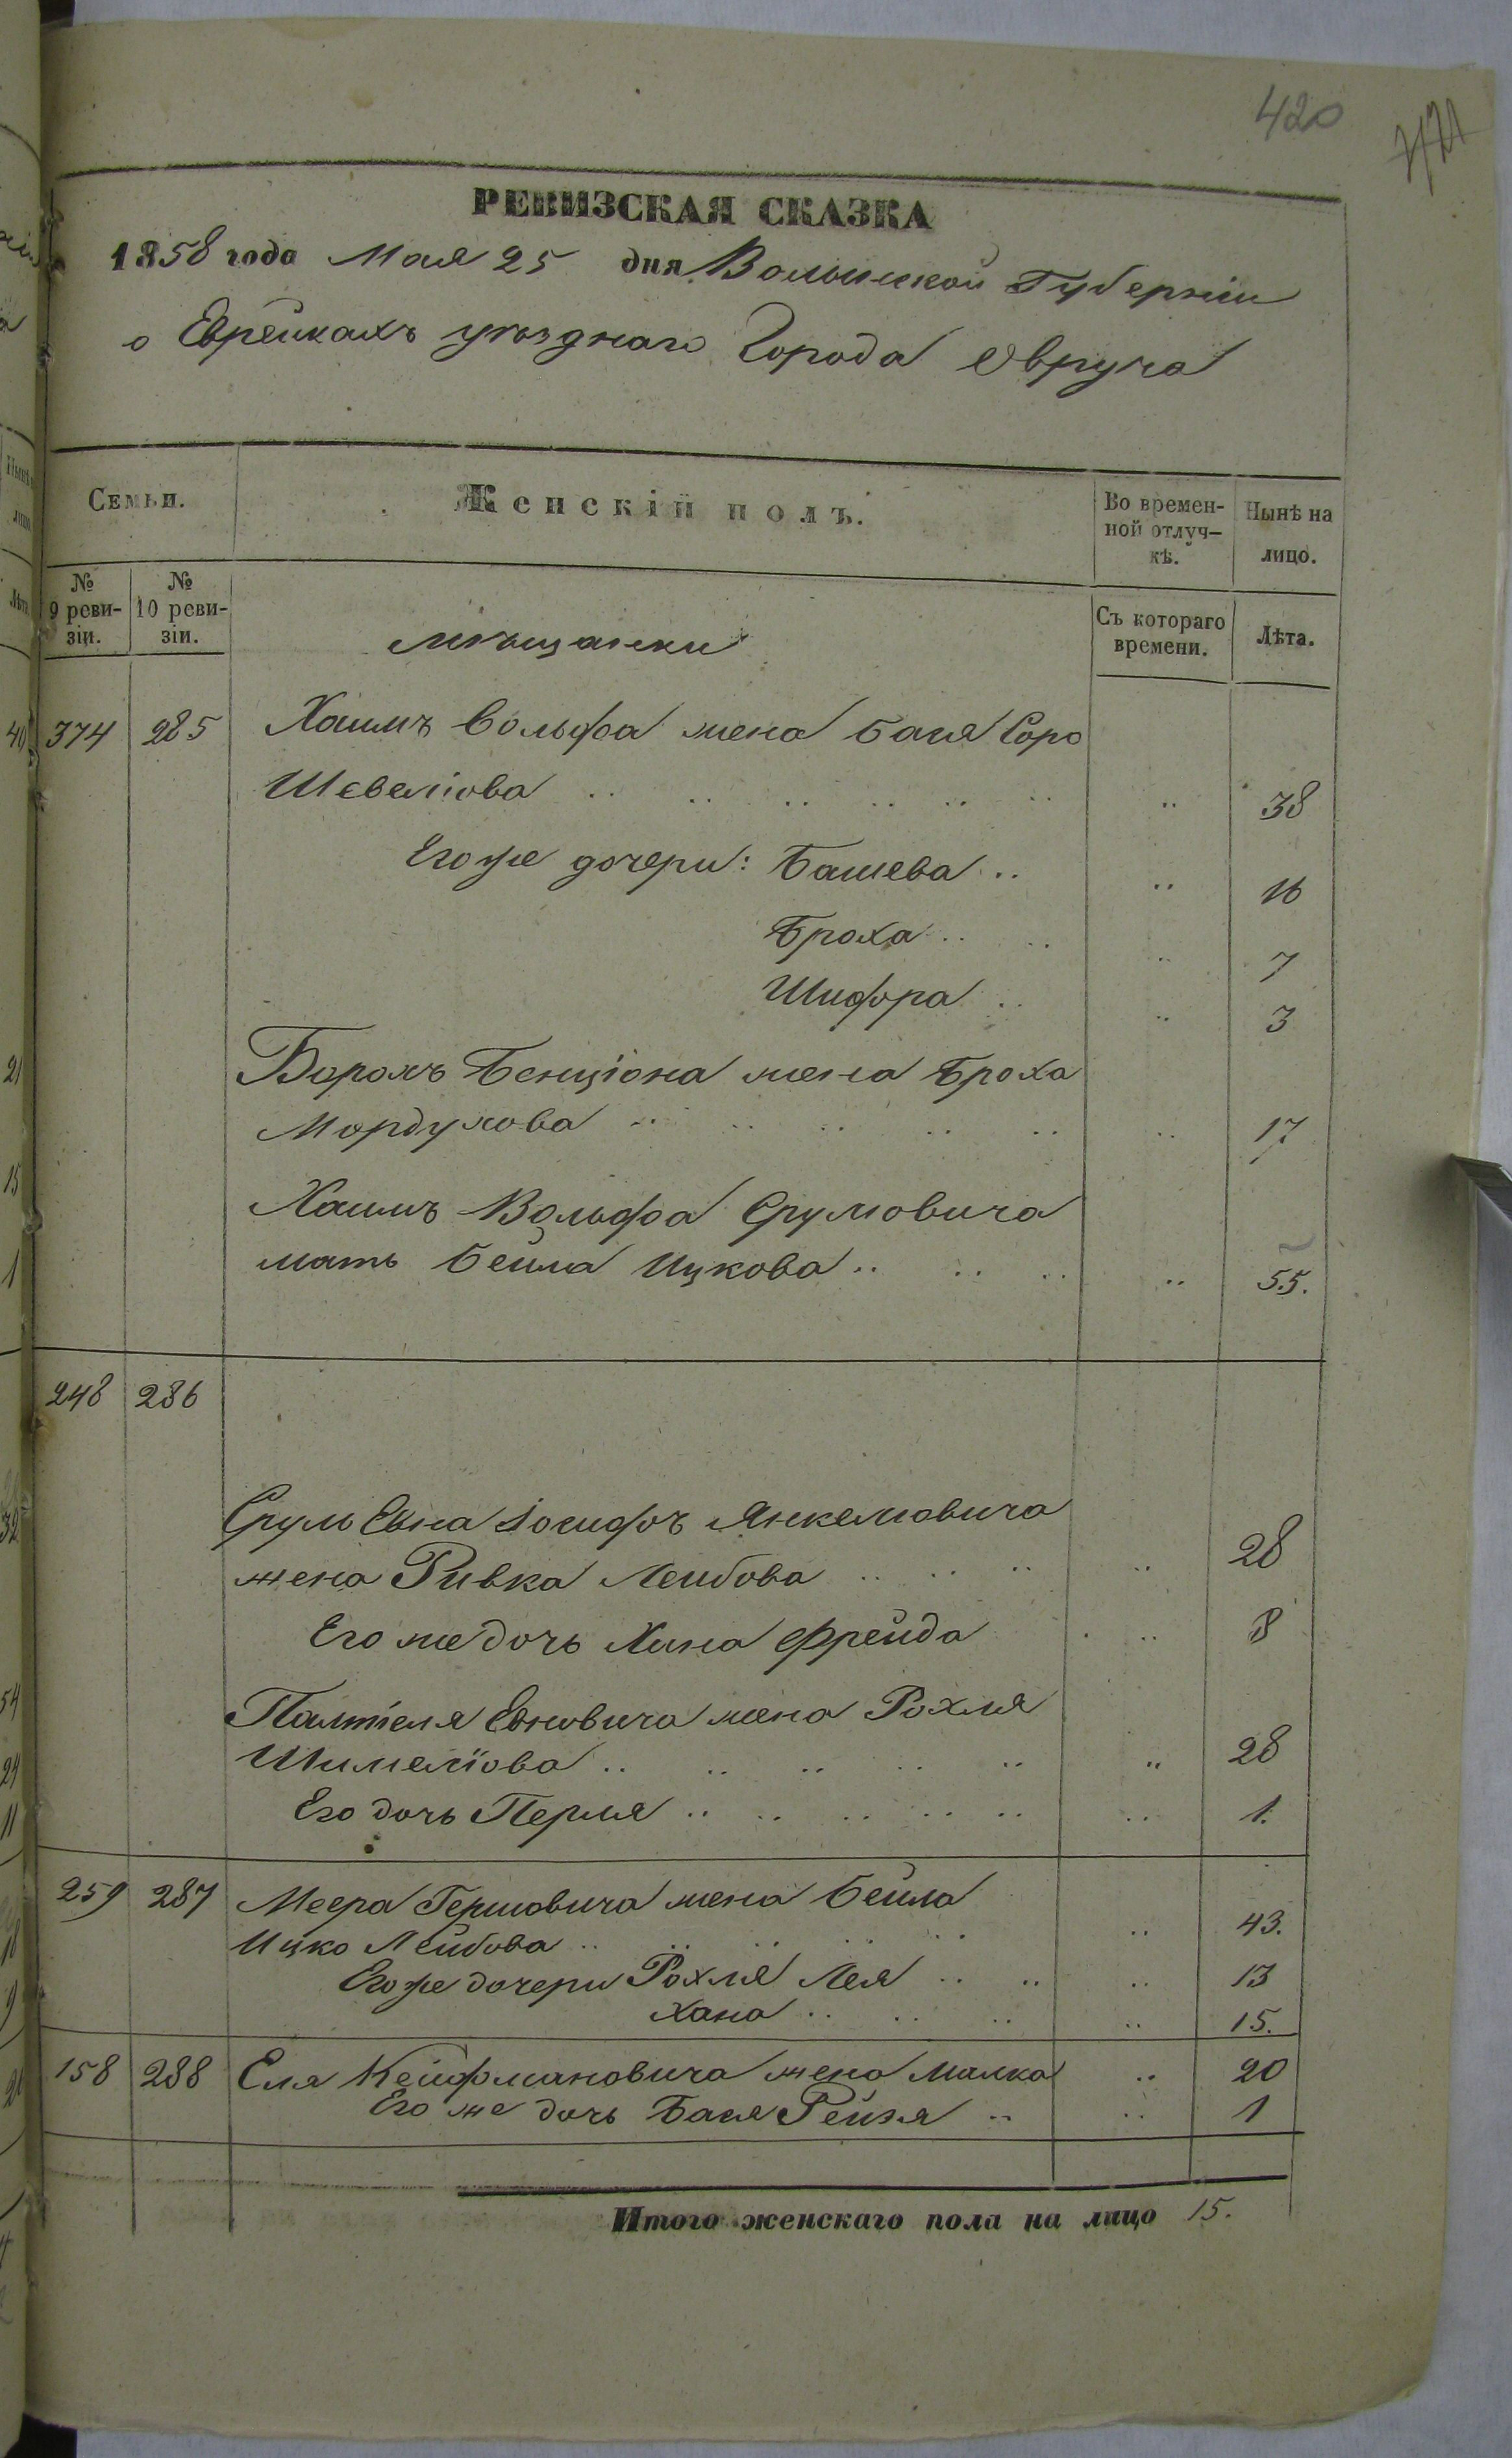 420
РЕВИЗСКАЯ СКАЗКА
1858 года Мая 25 дня Волынской Губерніи
о Еврейкахъ уѣзднаго Города Овруча
Семьи.
Женскій полъ.
Во времен-
ной отлуч-
кѣ.
Нынѣ на
лицо.
№
9 реви-
зіи.
№
10 реви-
зіи.
Съ котораго
времени.
Лѣта.
мѣщанки
374 285 Хаимъ Вольфа жена Бася Соро
Шевеліова .. .. .. .. .. .. .. 38
Его же дочери: Башева .. .. 16
Броха .. .. .. 7
Шифра .. .. 3
Борохъ Бенціона жена Броха
Мордухова .. .. .. .. .. .. 17
Хаимъ Вольфа Срулювича
мать Бейла Ицкова .. .. .. .. 55.
248 286
Сруль Евна Іосифъ Янкелювича
жена Ривка Лейбова .. .. .. .. 28
Его же дочь Хана Фрейда .. 8
Палтіеля Евновича жена Рохля
Шимеліова .. .. .. .. .. .. 28
Его дочь Перля .. .. .. .. .. .. 1.
259 287 Меера Гершовича жена Бейла
Ицко Лейбова .. .. .. .. .. .. 43.
Его же дочери Рохля Лея .. .. .. 13
Хана .. .. .. .. 15.
158 288 Еля Кейфмановича жена Малка .. 20
Его же дочь Бася Рейзя .. .. 1
Итого женскаго пола на лицо 15.